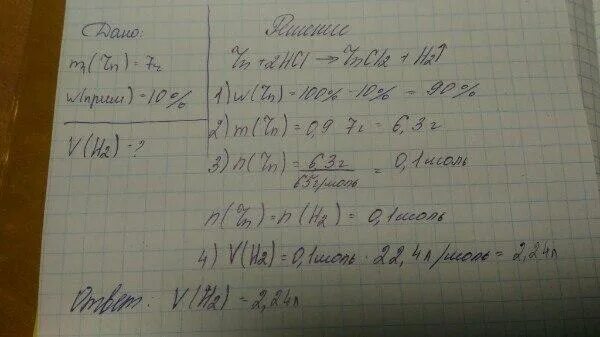 Дано:
m(Zn) = 7г
w(прим) = 10%
V(H2) = ?
Решение
Zn + 2HCl → ZnCl2 + H2↑
1) w(Zn) = 100% - 10% = 90%
2) m(Zn) = 0,9 7г = 6,3г
3) n(Zn) = 6 3г / 65г/моль = 0,1моль
n(Zn) = n(H2) = 0,1моль
4) V(H2) = 0,1моль · 22,4л/моль = 2,24л
Ответ. V(H2) = 2,24л